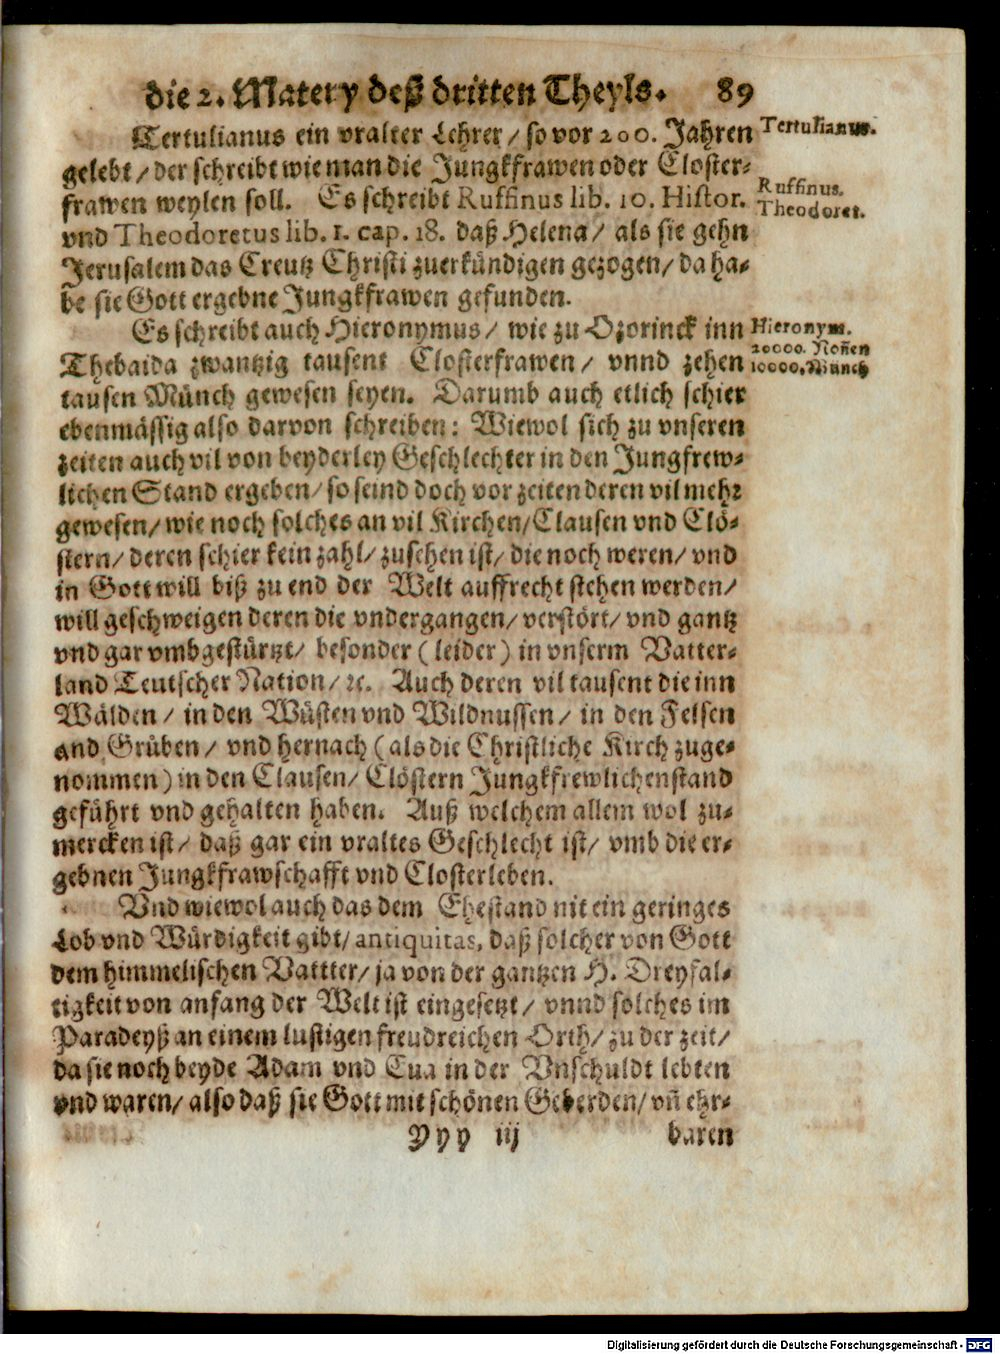 die 2. Matery deß dritten Theyls. 89
Tertulianus ein vralter Lehrer / so vor 200. Jahren
Tertulianus.
gelebt / der schreibt wie man die Jungkfrawen oder Closter-
frawen weylen soll. Es schreibt Ruffinus lib. 10. Histor.
Ruffinus.
Theodoret.
vnd Theodoretus lib. 1. cap. 18. daß Helena / als sie gehn
Jerusalem das Creutz Christi zuerkündigen gezogen / da ha-
be sie Gott ergebne Jungkfrawen gefunden.
Es schreibt auch Hieronymus / wie zu Ozorinck inn
Hieronym.
20000. Noñen
10000. Münch
Thebaida zwantzig tausent Closterfrawen / vnnd zehen
tausen Münch gewesen seyen. Darumb auch etlich schier
ebenmässig also darvon schreiben: Wiewol sich zu vnseren
zeiten auch vil von beyderley Geschlechter in den Jungfrew-
lichen Stand ergeben / so seind doch vor zeiten deren vil mehr
gewesen / wie noch solches an vil Kirchen / Clausen vnd Clö-
stern / deren schier kein zahl / zusehen ist / die noch weren / vnd
in Gott will biß zu end der Welt auffrecht stehen werden /
will geschweigen deren die vndergangen / verstört / vnd gantz
vnd gar vmbgestürtzt / besonder ( leider ) in vnserm Vatter-
land Teutscher Nation / ꝛc. Auch deren vil tausent die inn
Wälden / in den Wüsten vnd Wildnussen / in den Felsen
and Grüben / vnd hernach ( als die Christliche Kirch zuge-
nommen ) in den Clausen / Clöstern Jungkfrewlichenstand
geführt vnd gehalten haben. Auß welchem allem wol zu-
mercken ist / daß gar ein vraltes Geschlecht ist / vmb die er-
gebnen Jungkfrawschafft vnd Closterleben.
Vnd wiewol auch das dem Ehestand nit ein geringes
Lob vnd Würdigkeit gibt / antiquitas, daß solcher von Gott
dem himmelischen Vattter / ja von der gantzen H. Dreyfal-
tigkeit von anfang der Welt ist eingesetzt / vnnd solches im
Paradeyß an einem lustigen freudreichen Orth / zu der zeit /
da sie noch beyde Adam vnd Eua in der Vnschuldt lebten
vnd waren / also daß sie Gott mit schönen Geberden / vñ ehr-
Yyy iij baren
Digitalisierung gefördert durch die Deutsche Forschungsgemeinschaft - DFG